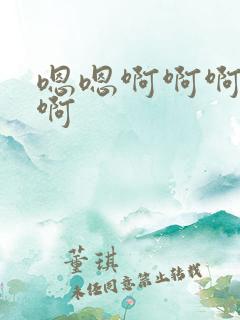 嗯嗯啊啊啊
啊
董琪
未经同意禁止转载